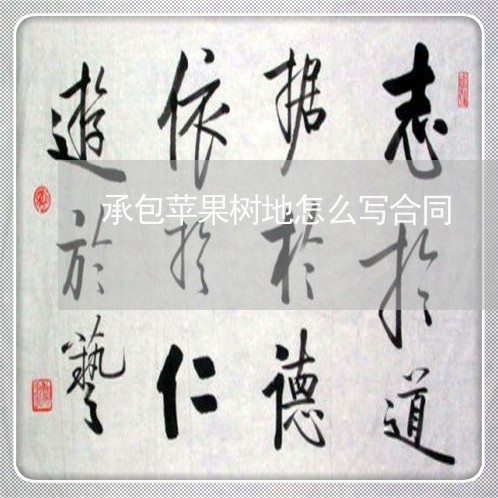 志於道
据於德
依於仁
遊於藝
承包苹果树地怎么写合同